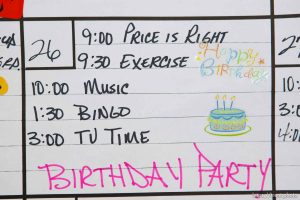 26
9:00 PRICE IS RIGHT
9:30 EXERCISE
Happy
Birthday
10:00 MUSIC
1:30 BINGO
3:00 TV TIME
BIRTHDAY PARTY
27